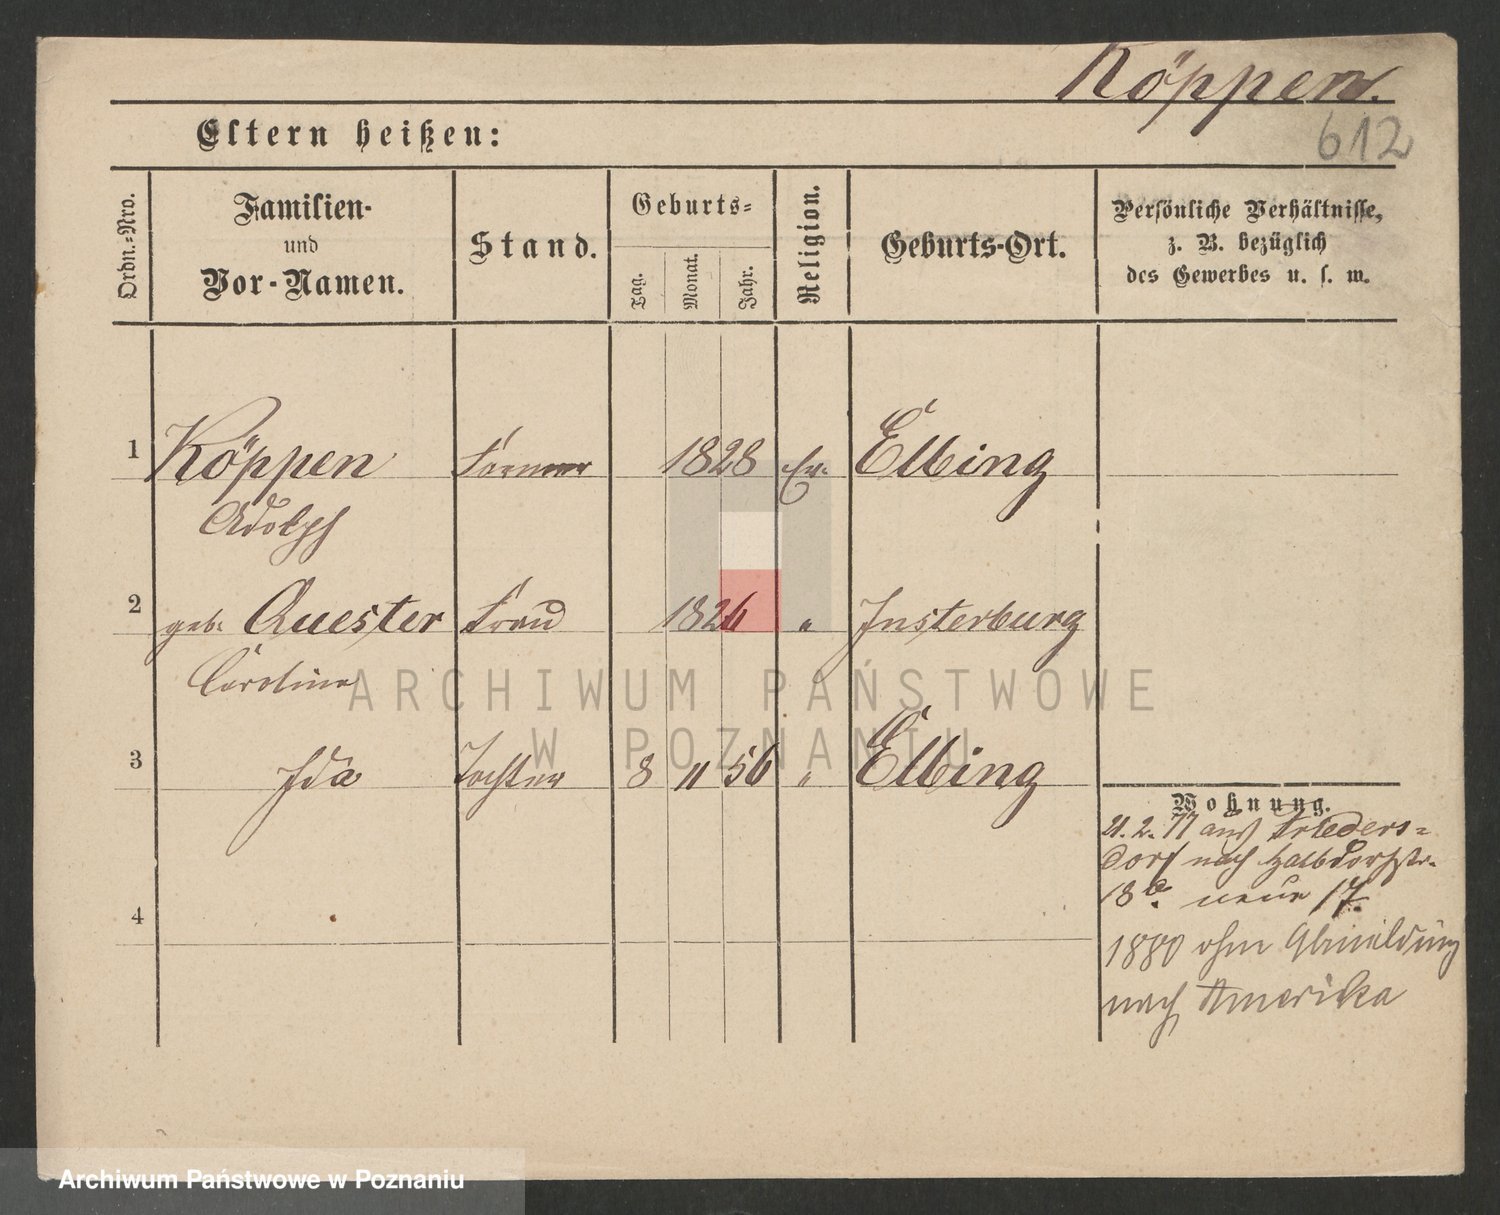 Köppen.
612
Eltern heißen:
Ordn.-Nro.
Familien-
und
Vor-Namen.
Stand.
Geburts-
Tag.
Monat.
Jahr.
Religion.
Geburts-Ort.
Persönliche Verhältnisse,
z. B. bezüglich
des Gewerbes u. s. w.
1 Köppen Former 1828 Ev. Elbing
Adolph
2 geb. Quester Frau 1826 " Insterburg
Caroline
3 Ida Tochter 8 11 56 " Elbing
Wohnung.
21. 2. 77 aus Frieders-
dorf nach Halbdorfstr.
18 neue 17.
4
1880 ohne Abmeldung
nach Amerika
ARCHIWUM PAŃSTWOWE
W POZNANIU
Archiwum Państwowe w Poznaniu